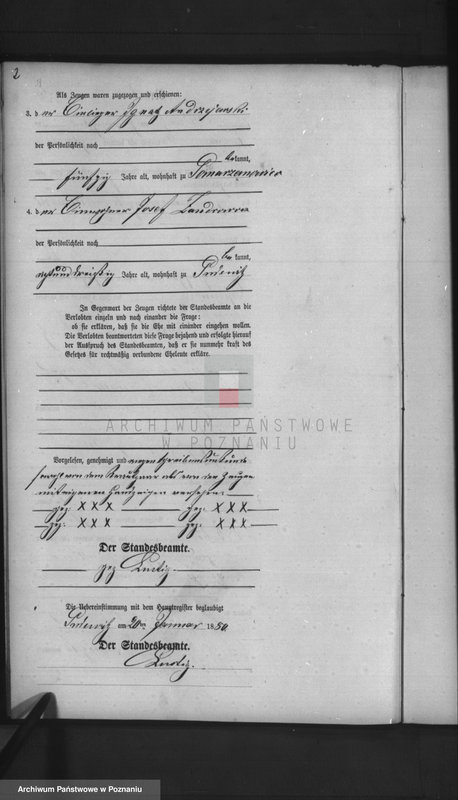 2
Als Zeugen waren zugezogen und erschienen:
3. der Ignatz Andrzejewski
der Persönlichkeit nach
bekannt,
fünfzig Jahre alt, wohnhaft zu
4. der Einwohner Josef
der Persönlichkeit nach
bekannt,
achtunddreißig Jahre alt, wohnhaft zu Pudewitz
In Gegenwart der Zeugen richtete der Standesbeamte an die
Verlobten einzeln und nach einander die Frage:
ob sie erklären, daß sie die Ehe mit einander eingehen wollen.
Die Verlobten beantworteten diese Frage bejahend und erfolgte hierauf
der Ausspruch des Standesbeamten, daß er sie nunmehr kraft des
Gesetzes für rechtmäßig verbundene Eheleute erkläre.
ARCHIWUM PAŃSTWOWE
W POZNANIU
Vorgelesen, genehmigt und wegen Schreibensunkunde
sowohl von dem als von den Zeugen
mit eigenen Handzeichen versehen:
gez: X X X gez: X X X
gez: X X X gez: X X X
Der Standesbeamte.
gez
Die Uebereinstimmung mit dem Hauptregister beglaubigt
Pudewitz am 20ten Januar 1880
Der Standesbeamte.
Archiwum Państwowe w Poznaniu